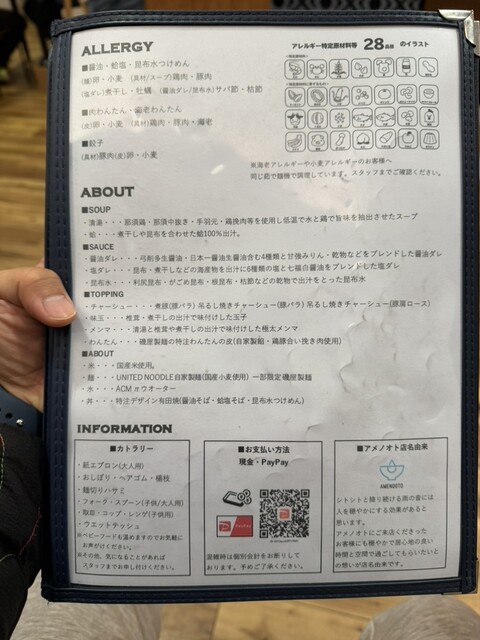 ALLERGY
アレルギー特定原材料等 28品目 のイラスト
■醤油・蛤塩・昆布水つけめん
(麺)卵・小麦 (具材/スープ)鶏肉・豚肉
(塩ダレ)煮干し・牡蠣 (醤油ダレ/昆布水)サバ節・枯節
■肉わんたん・海老わんたん
(皮)卵・小麦 (具材)鶏肉・豚肉・海老
■餃子
(具材)豚肉(皮)卵・小麦
※海老アレルギーや小麦アレルギーのお客様へ
同じ釜で麺機で調理しています。スタッフまでご確認ください。
ABOUT
■SOUP
・清湯・・・那須鶏・那須中抜き・手羽元・鶏挽肉等を使用し低温で水と鶏で旨味を抽出させたスープ
・蛤・・・煮干しや昆布を合わせた蛤100%出汁。
■SAUCE
・醤油ダレ・・・弓削多生醤油・日本一醤油生醤油含む4種類と甘強みりん・乾物などをブレンドした醤油ダレ
・塩ダレ・・・昆布・煮干しなどの海産物を出汁に6種類の塩と七福白醤油をブレンドした塩ダレ
・昆布水・・・利尻昆布・がごめ昆布・根昆布・枯節などの乾物で出汁をとった昆布水
■TOPPING
・チャーシュー・・・煮豚(豚バラ) 吊るし焼きチャーシュー(豚バラ) 吊るし焼きチャーシュー(豚肩ロース)
・味玉・・・椎茸・煮干しの出汁で味付けした玉子
・メンマ・・・清湯と椎茸や煮干しの出汁で味付けした極太メンマ
・わんたん・・・磯屋製麺の特注わんたんの皮(自家製餡・鶏豚合い挽き肉使用)
■ABOUT
・米・・・国産米使用。
・麺・・・UNITED NOODLE自家製麺(国産小麦使用) 一部限定磯屋製麺
・水・・・ACM々ウオーター
・丼・・・特注デザイン有田焼(醤油そば・蛤塩そば・昆布水つけめん)
INFORMATION
■カトラリー
・紙エプロン(大人用)
・おしぼり・ヘアゴム・楊枝
・麺切りハサミ
・フォーク・スプーン(子供/大人用)
・取皿・コップ・レンゲ(子供用)
・ウエットテッシュ
※ベビーフードも温めますのでお気軽に
お声がけください。
※その他、気になることがあれば
スタッフまでお申し付けください。
■お支払い方法
現金・PayPay
PayPay
混雑時は個別会計をお断りして
おります。予めご了承ください。
■アメノオト店名由来
AMENOOTO
シトシトと降り続ける雨の音には
人を穏やかにする効果があると
思います。
アメノオトにご来店くださった
お客様にも穏やかで居心地の良い
時間と空間で過ごしてもらいたいと
の想いが店名由来です。